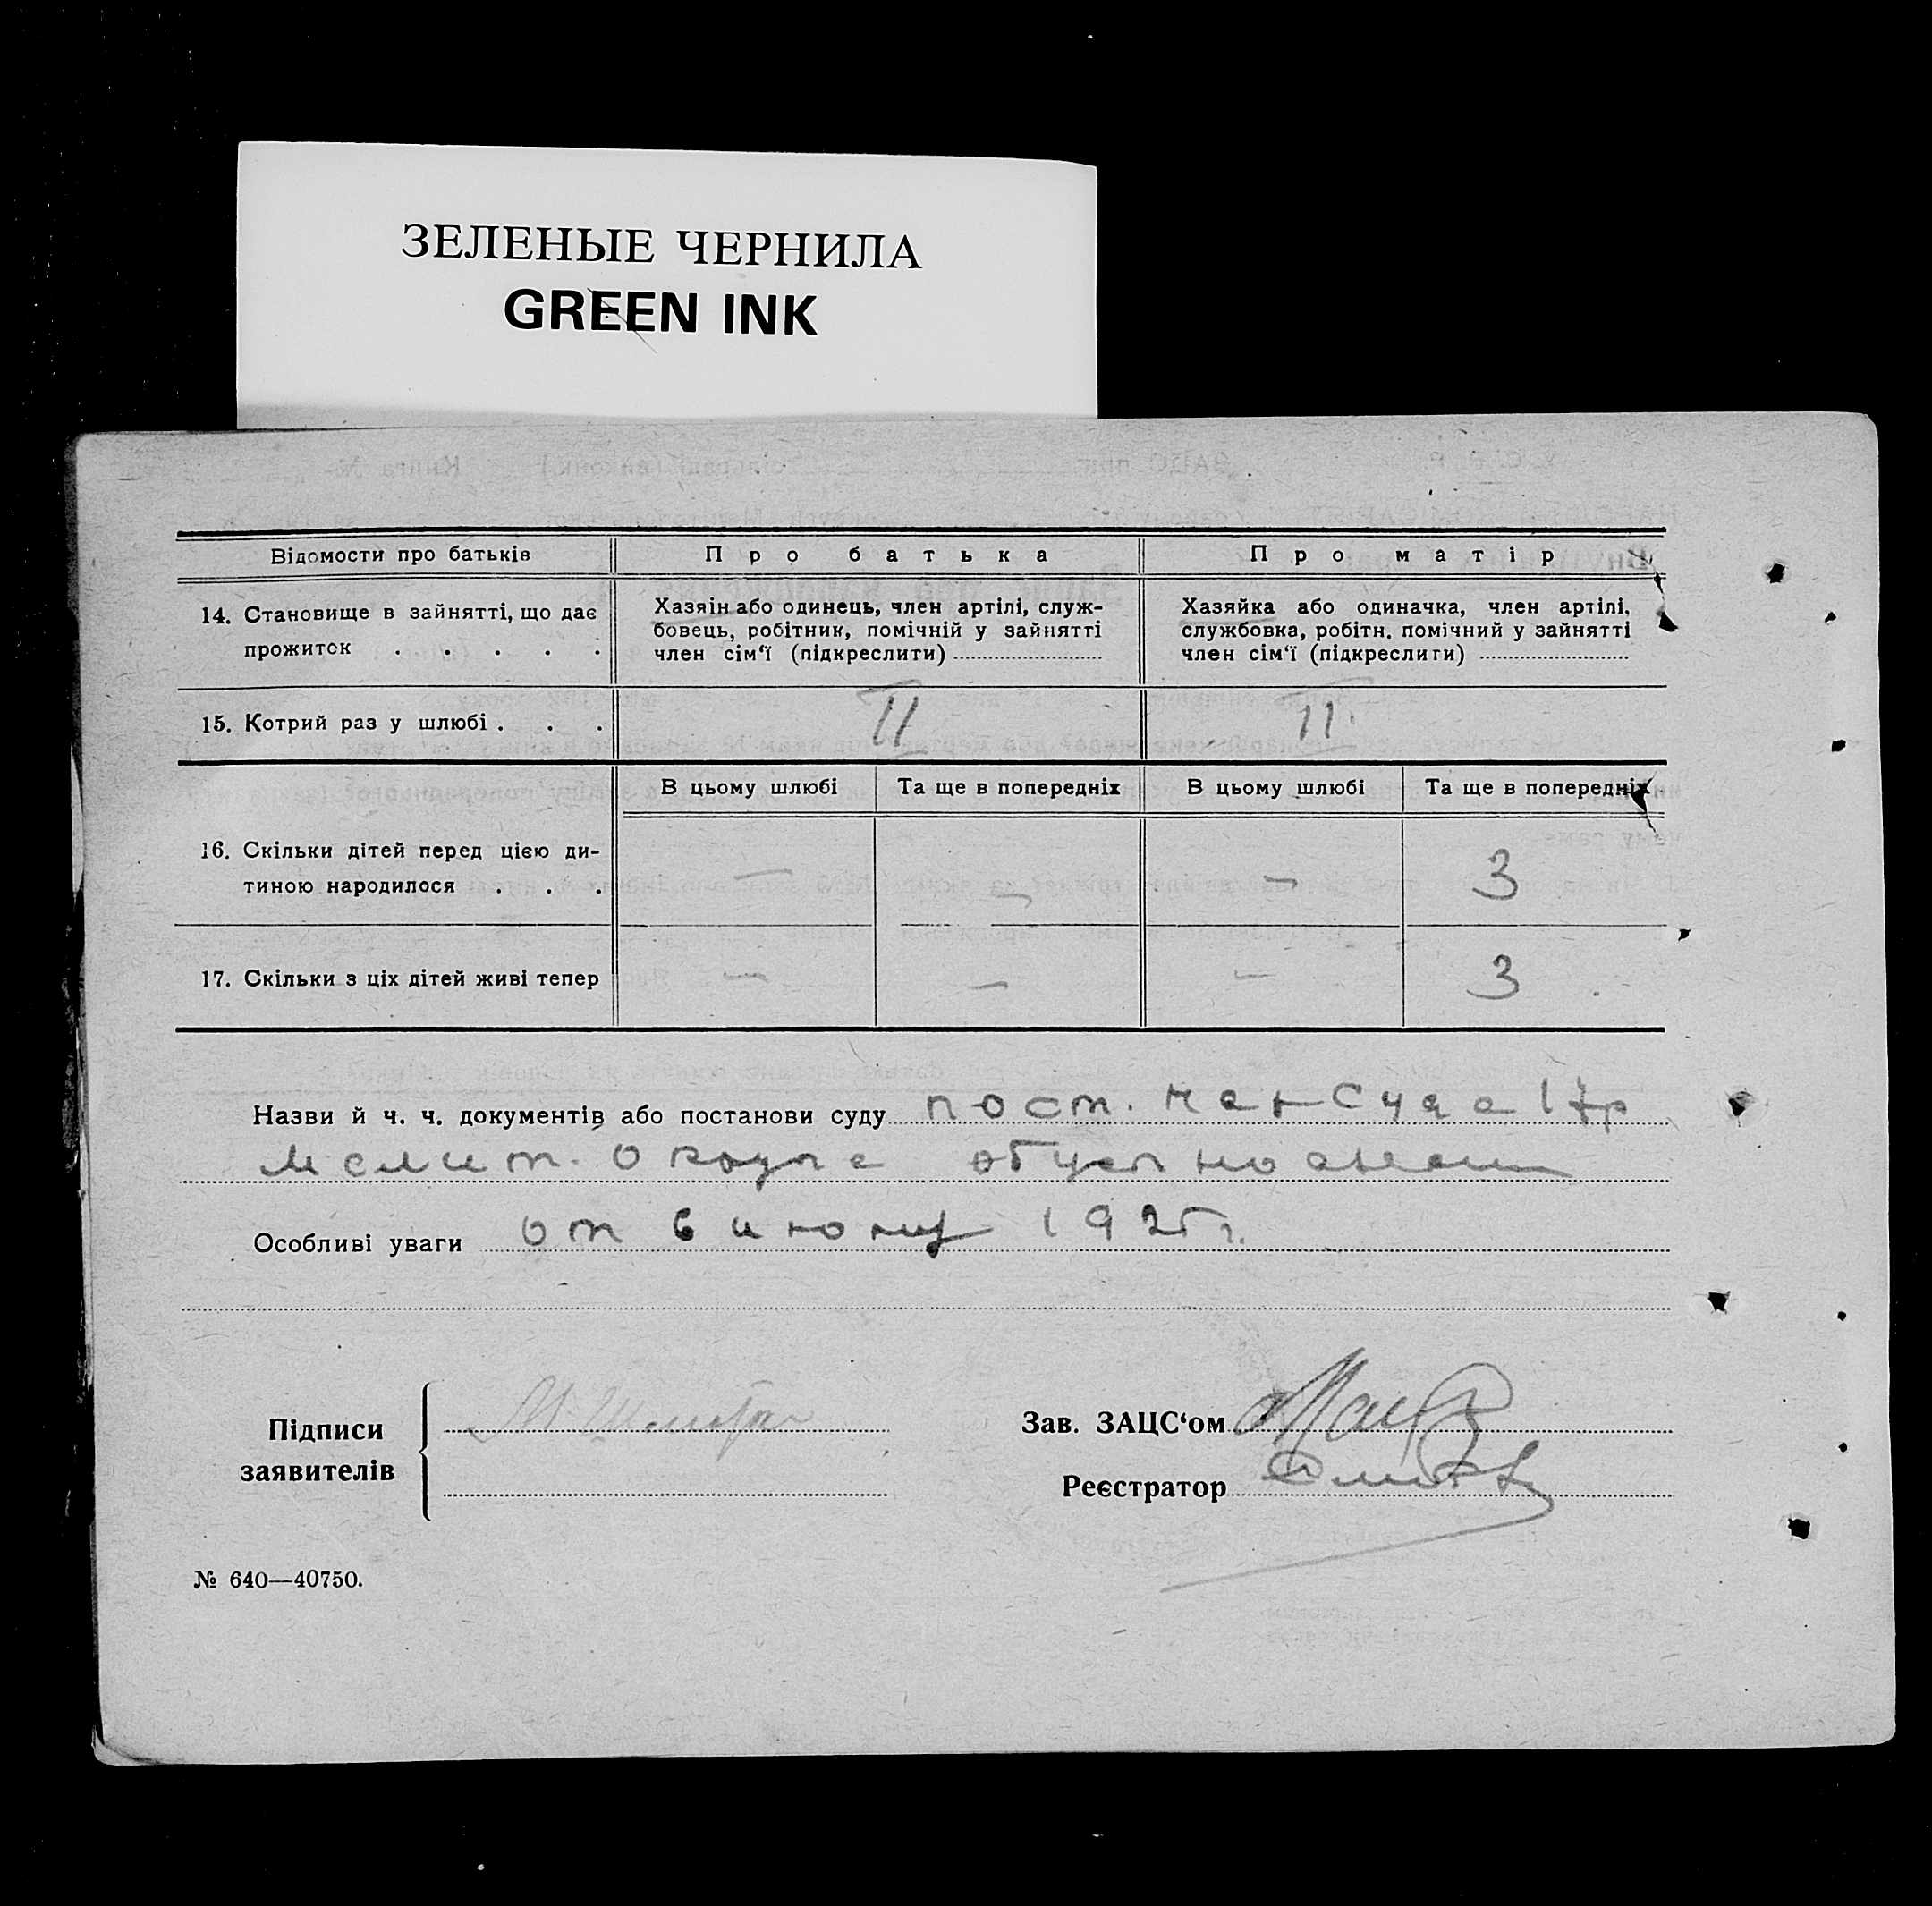 ЗЕЛЕНЫЕ ЧЕРНИЛА
GREEN INK
Відомости про батьків Про батька Про матір
14. Становище в зайнятті, що дає прожиток . . . . .
Хазяін або одинець, член артілі, служ-
бовець, робітник, помічній у зайнятті
член сім‘ї (підкреслити)
Хазяйка або одиначка, член артілі,
службовка, робітн. помічний у зайнятті
член сім‘ї (підкреслити)
15. Котрий раз у шлюбі . . . II II.
В цьому шлюбі Та ще в попередніх В цьому шлюбі Та ще в попередніх
16. Скільки дітей перед цією ди-
тиною народилося . . . — — — 3
17. Скільки з ціх дітей живі тепер — — — 3
Назви й ч. ч. документів або постанови суду пост. нарсуда 1
Мелит. Округа об
Особливі уваги от 6 июня 1925 г.
Підписи
заявителів
Зав. ЗАЦС‘ом
Реєстратор
№ 640—40750.